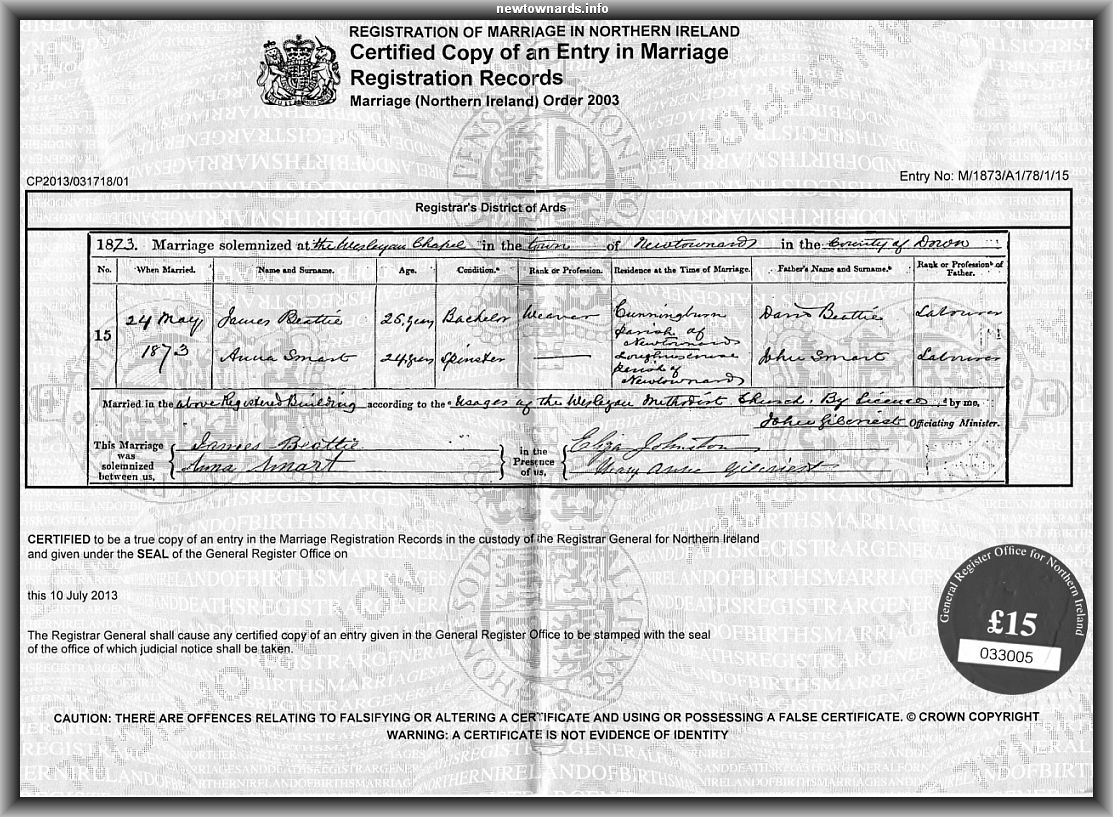 newtownards.info
REGISTRATION OF MARRIAGE IN NORTHERN IRELAND
Certified Copy of an Entry in Marriage
Registration Records
Marriage (Northern Ireland) Order 2003
CP2013/031718/01
Entry No: M/1873/A1/78/1/15
Registrar's District of Ards
1873. Marriage solemnized at the Wesleyan Chapel in the town of Newtownards in the County of Down
No. When Married. Name and Surname. Age. Condition. Rank or Profession. Residence at the Time of Marriage. Father's Name and Surname. Rank or Profession of Father.
15 24 May 1873
James Beattie 25 years Bachelor Weaver Cunningburn parish of Newtownards David Beattie Labourer
Anna Smart 24 years Spinster — parish of Newtownards John Smart Labourer
Married in the above Registered Building according to the Usages of the Wesleyan Methodist Church. By Licence by me,
John Gilcriest Officiating Minister.
This Marriage was solemnized between us, James Beattie Anna Smart in the Presence of us, Eliza Johnston Mary Anne Gilcriest
CERTIFIED to be a true copy of an entry in the Marriage Registration Records in the custody of the Registrar General for Northern Ireland
and given under the SEAL of the General Register Office on
this 10 July 2013
The Registrar General shall cause any certified copy of an entry given in the General Register Office to be stamped with the seal
of the office of which judicial notice shall be taken.
General Register Office for Northern Ireland
£15
033005
CAUTION: THERE ARE OFFENCES RELATING TO FALSIFYING OR ALTERING A CERTIFICATE AND USING OR POSSESSING A FALSE CERTIFICATE. © CROWN COPYRIGHT
WARNING: A CERTIFICATE IS NOT EVIDENCE OF IDENTITY